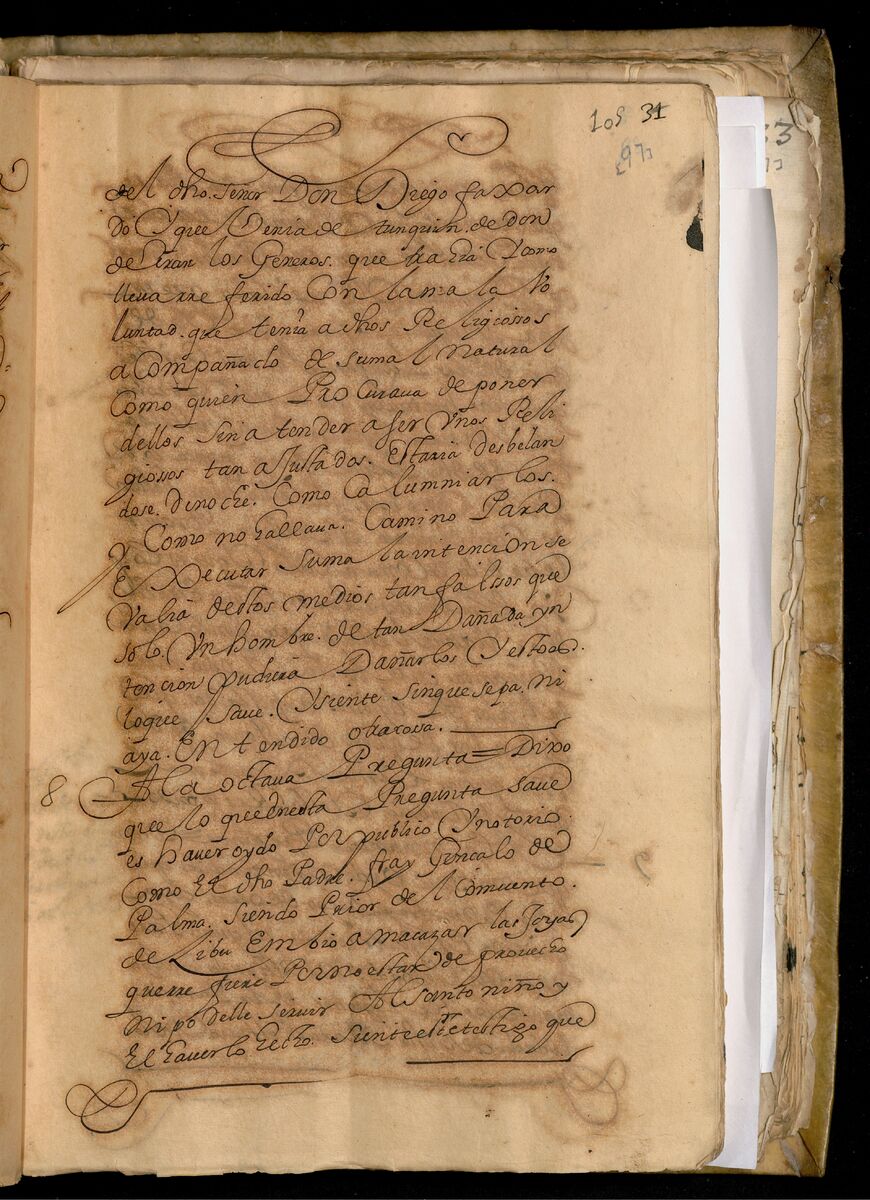 105 31
97
del dho. Señor Don Diego faxar
do Y que Venia de tunquin. de don
de Eran los Generos. que trahia Y como
lleva rre ferido Con la ma la Vo
luntad. que tenia a dhos Religiossos
a Compañado de su mal Natural
Como quien Pro Curava de poner
dellos Sin a tender a ser Vnos Reli
giossos tan a Justados. Estaria Desbelan
dose. De noche. Como Ca lumniar los.
y Como no hallava. Camino Para
E Xecutar Su ma la intencion se
Valia destos medios tan falssos que
solo. Vn hombre. de tan Dañada yn
tencion pudiera Dañarlos Y esto es.
lo que Save. Y siente sin que sepa. ni
aya. En t endido otra cossa.
8 A la octava Pregunta = Dixo
que lo que en esta Pregunta save
es haver oydo Por publico Y notorio.
Como El dho Padre. fray Gonçalo de
Palma. siendo Prior del Comvento.
de Libu Embio a macazar las Joyas
que rre fiere Por no estar de provecho
ni po delle servir Al santo niño y
El haverlo hecho. siente este testigo que